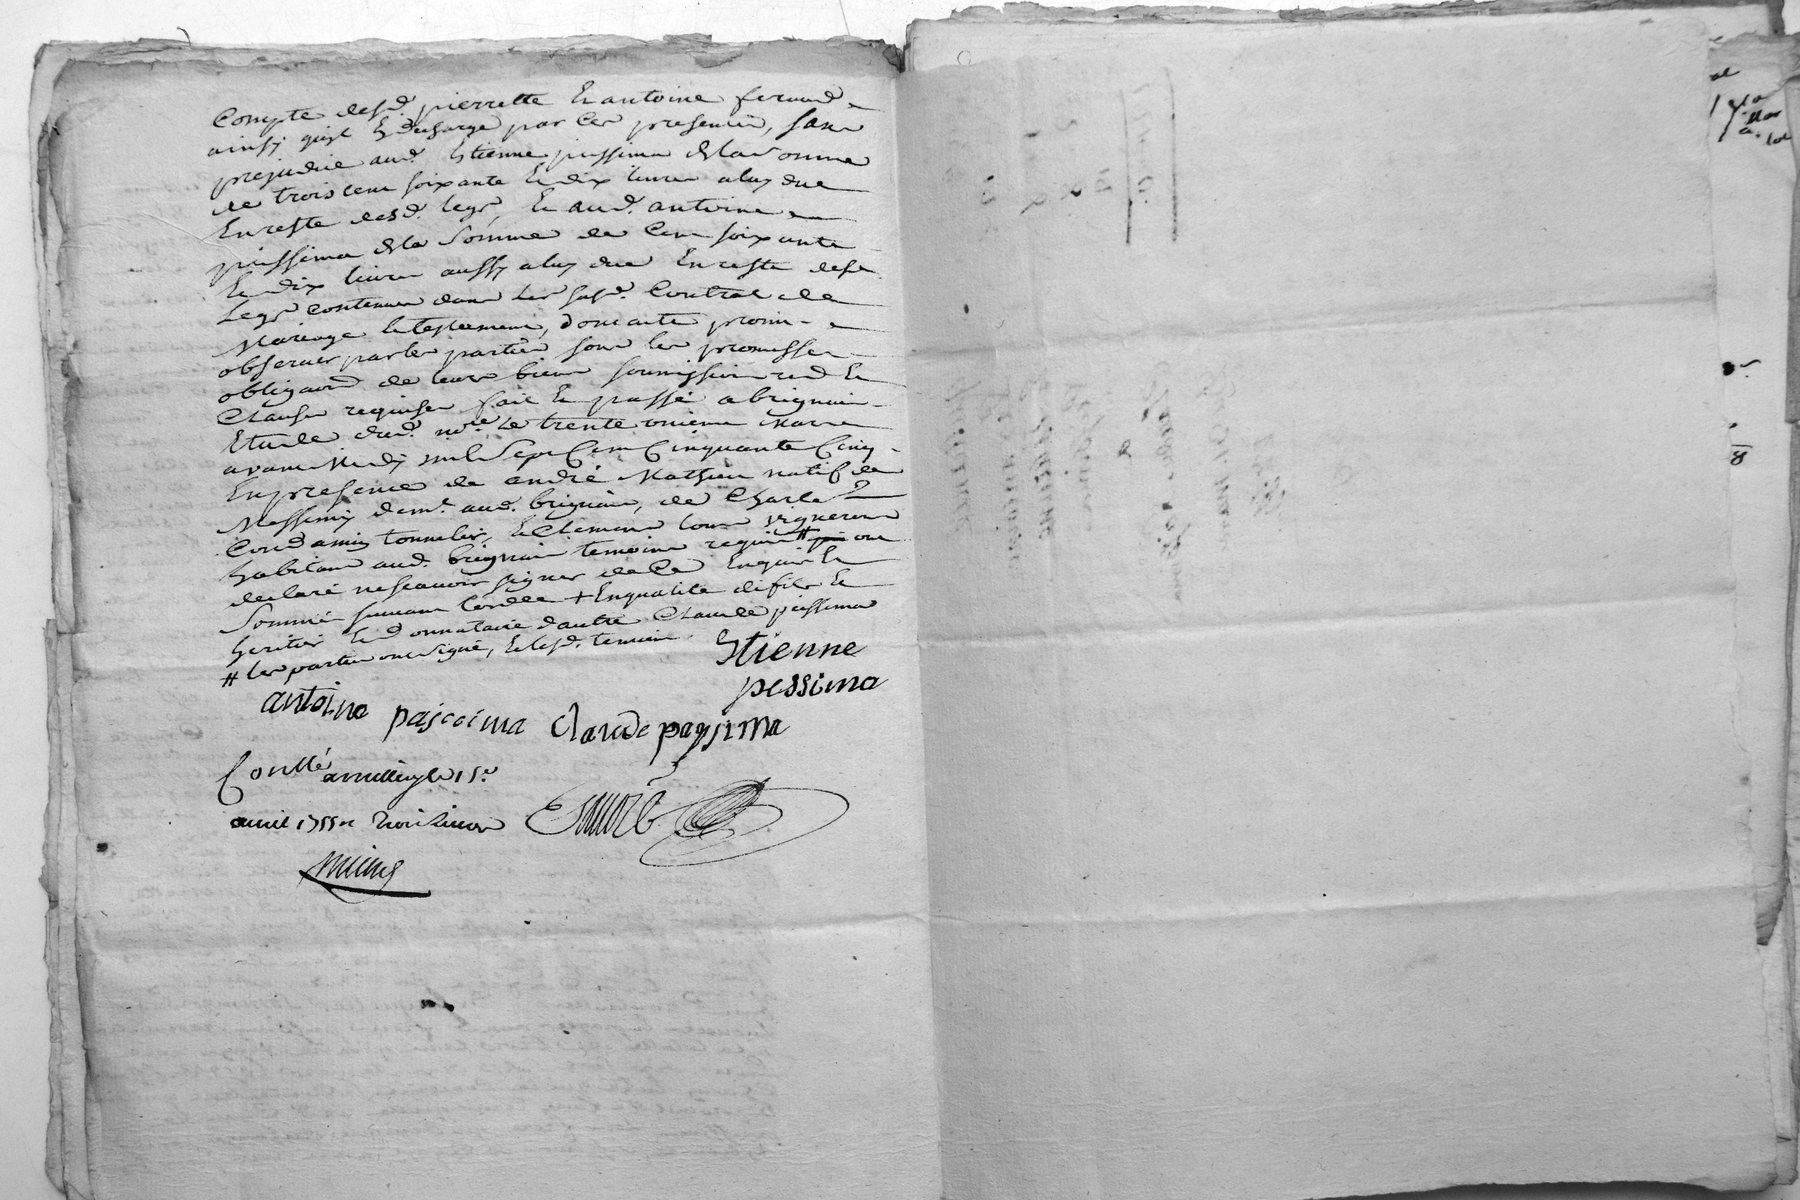 Compte desd. pierrette Et antoine feraud
ainsy quil En descharge par Ces presentes, sans
prejudice aud. Estienne pessima de la somme
de trois cent soixante Et dix livres a luy due
En reste desd. legs, Et aud. antoine
pessima de la somme de Cent soixante
Et dix livres aussy a luy due En reste desd.
legs contenues dans les susd. Contrat de
Mariage Et testament, dont acte promis
observer par les parties sous les promesses
obligaons de leurs biens soumissions rend Et
Clauses requises fait Et passé a brignais
Etude dud. nore Le trente unieme Mars
avant Midy mil Sept Cent Cinquante Cinq
En presence de andré Mathieu natif de
Messimy demt. aud. brignais, de Charle
Condamin tonnelier, Et Clement vigneron
habitans aud. brignais temoins requis # ont
declaré ne scavoir signer de Ce Enquis Et
Sommé suivant Lordce + En qualité de fils Et
heritier Et donnataire d'autre Claude pessima
# les parties ont signé, Et lesd. temoins
Etienne
pessima
antoine pessima Claude payssima
Conllé a millery le 15e
avril 1755 R trois livres